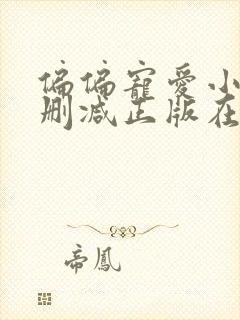 偏偏寵愛小
刪減正版在
帝鳳